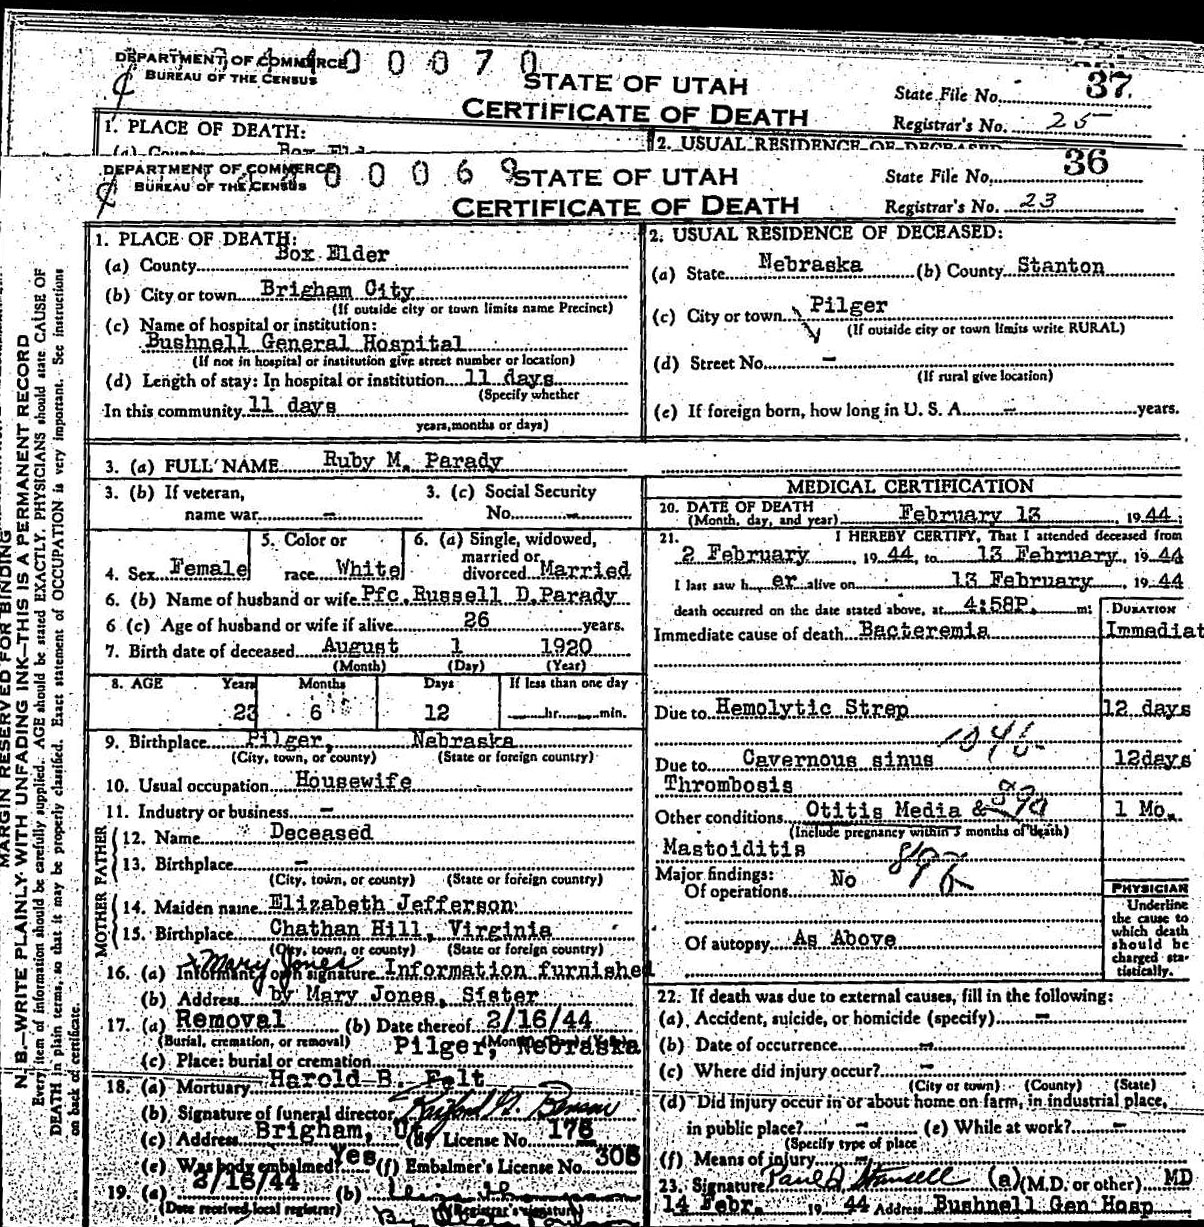 DEPARTMENT OF COMMERCE
BUREAU OF THE CENSUS
0 0 0 7 0
STATE OF UTAH
CERTIFICATE OF DEATH
State File No. 37
Registrar's No. 25
1. PLACE OF DEATH:
2. USUAL RESIDENCE OF DECEASED
(a) County Box Eld
DEPARTMENT OF COMMERCE
BUREAU OF THE CENSUS
0 0 0 6 9
STATE OF UTAH
CERTIFICATE OF DEATH
State File No. 36
Registrar's No. 23
MARGIN RESERVED FOR BINDING
N. B.—WRITE PLAINLY WITH UNFADING INK—THIS IS A PERMANENT RECORD
Every item of information should be carefully supplied. AGE should be stated EXACTLY. PHYSICIANS should state CAUSE OF
DEATH in plain terms, so that it may be properly classified. Exact statement of OCCUPATION is very important. See instructions
on back of certificate.
1. PLACE OF DEATH:
(a) County Box Elder
(b) City or town Brigham City
(If outside city or town limits name Precinct)
(c) Name of hospital or institution:
Bushnell General Hospital
(If not in hospital or institution give street number or location)
(d) Length of stay: In hospital or institution 11 days
(Specify whether
In this community 11 days
years, months or days)
2. USUAL RESIDENCE OF DECEASED:
(a) State Nebraska (b) County Stanton
(c) City or town Pilger
(If outside city or town limits write RURAL)
(d) Street No. –
(If rural give location)
(e) If foreign born, how long in U. S. A. – years.
3. (a) FULL NAME Ruby M. Parady
3. (b) If veteran, name war –
3. (c) Social Security No. –
4. Sex Female
5. Color or race White
6. (a) Single, widowed, married or divorced Married
6. (b) Name of husband or wife Pfc. Russell D. Parady
6 (c) Age of husband or wife if alive 26 years.
7. Birth date of deceased August 1 1920
(Month) (Day) (Year)
8. AGE Years Months Days If less than one day
23 6 12 hr. min.
9. Birthplace Pilger, Nebraska
(City, town, or county) (State or foreign country)
10. Usual occupation Housewife
11. Industry or business –
FATHER
12. Name Deceased
13. Birthplace –
(City, town, or county) (State or foreign country)
MOTHER
14. Maiden name Elizabeth Jefferson
15. Birthplace Chathan Hill, Virginia
(City, town, or county) (State or foreign country)
x Mary Jones
16. (a) Informant own signature Information furnished
(b) Address by Mary Jones, Sister
17. (a) Removal (b) Date thereof 2/16/44
(Burial, cremation, or removal) (Month)
(c) Place: burial or cremation Pilger, Nebraska
18. (a) Mortuary Harold B. Felt
(b) Signature of funeral director
(c) Address Brigham, Ut License No. 176
(e) Was body embalmed? Yes (f) Embalmer's License No. 306
19. (a) 2/16/44 (b)
(Date received local registrar) (Registrar's signature)
MEDICAL CERTIFICATION
20. DATE OF DEATH
(Month, day, and year) February 13, 1944
21. I HEREBY CERTIFY, That I attended deceased from
2 February, 1944, to 13 February, 1944
I last saw her alive on 13 February, 1944
death occurred on the date stated above, at 4:58P. m:
DURATION
Immediate cause of death Bacteremia Immediat
Due to Hemolytic Strep 12 days
Due to Cavernous sinus 12days
Thrombosis
Other conditions Otitis Media & 1 Mo.
(Include pregnancy within 3 months of death)
Mastoiditis
Major findings:
Of operations No
Of autopsy As Above
PHYSICIAN
Underline
the cause to
which death
should be
charged sta-
tistically.
22. If death was due to external causes, fill in the following:
(a) Accident, suicide, or homicide (specify) –
(b) Date of occurrence –
(c) Where did injury occur? –
(City or town) (County) (State)
(d) Did injury occur in or about home on farm, in industrial place,
in public place? – (e) While at work? –
(Specify type of place
(f) Means of injury –
23. Signature (a) (M.D. or other) MD
14 Febr. 1944 Address Bushnell Gen Hosp